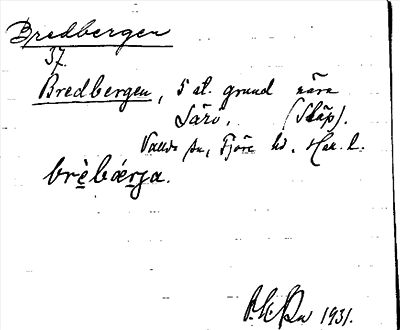 Bredbergen
37.
Bredbergen, 5 st. grund nära
Särö. (Släp).
Vallda sn, Fjäre hd. Hall. l.
brèbǽrja.
1931.